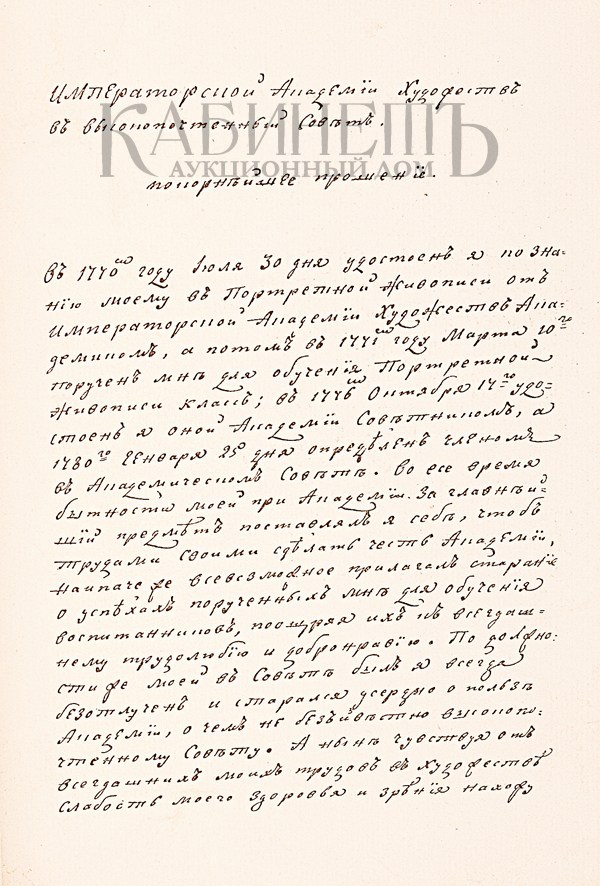 Императорской Академіи Художествъ
въ высокопочтенный Совѣтъ.
КАБИНЕТЪ
АУКЦИОННЫЙ ДОМ
покорнѣйшее прошеніе.
Въ 1770мъ году Іюля 30 дня удостоенъ я по зна-
нію моему въ Портретной Живописи отъ
Императорской Академіи Художествъ Ака-
демикомъ, а потомъ въ 1771мъ году Марта 10го
порученъ мнѣ для обученія Портретной
Живописи классъ; въ 1776мъ Октября 17го удо-
стоенъ я оной Академіи Совѣтникомъ, а
1780го Генваря 25 дня опредѣленъ членомъ
въ Академическомъ Совѣтѣ. Во все время
бытности моей при Академіи за главнѣй-
шій предмѣтъ поставлялъ я себѣ, чтобъ
трудами своими сдѣлать честь Академіи,
наипаче же всевозможное прилагалъ стараніе
о успѣхахъ порученныхъ мнѣ для обученія
воспитанниковъ, поощряя ихъ къ всегдаш-
нему трудолюбію и добронравію. По должно-
сти же моей въ Совѣтѣ былъ я всегда
безотлученъ и старался усердно о пользѣ
Академіи, о чемъ не безъизвѣстно высокопо-
чтенному Совѣту. А нынѣ чувствуя отъ
всегдашнихъ моихъ трудовъ въ Художествѣ
слабость моего здоровья и зрѣнія нахожу